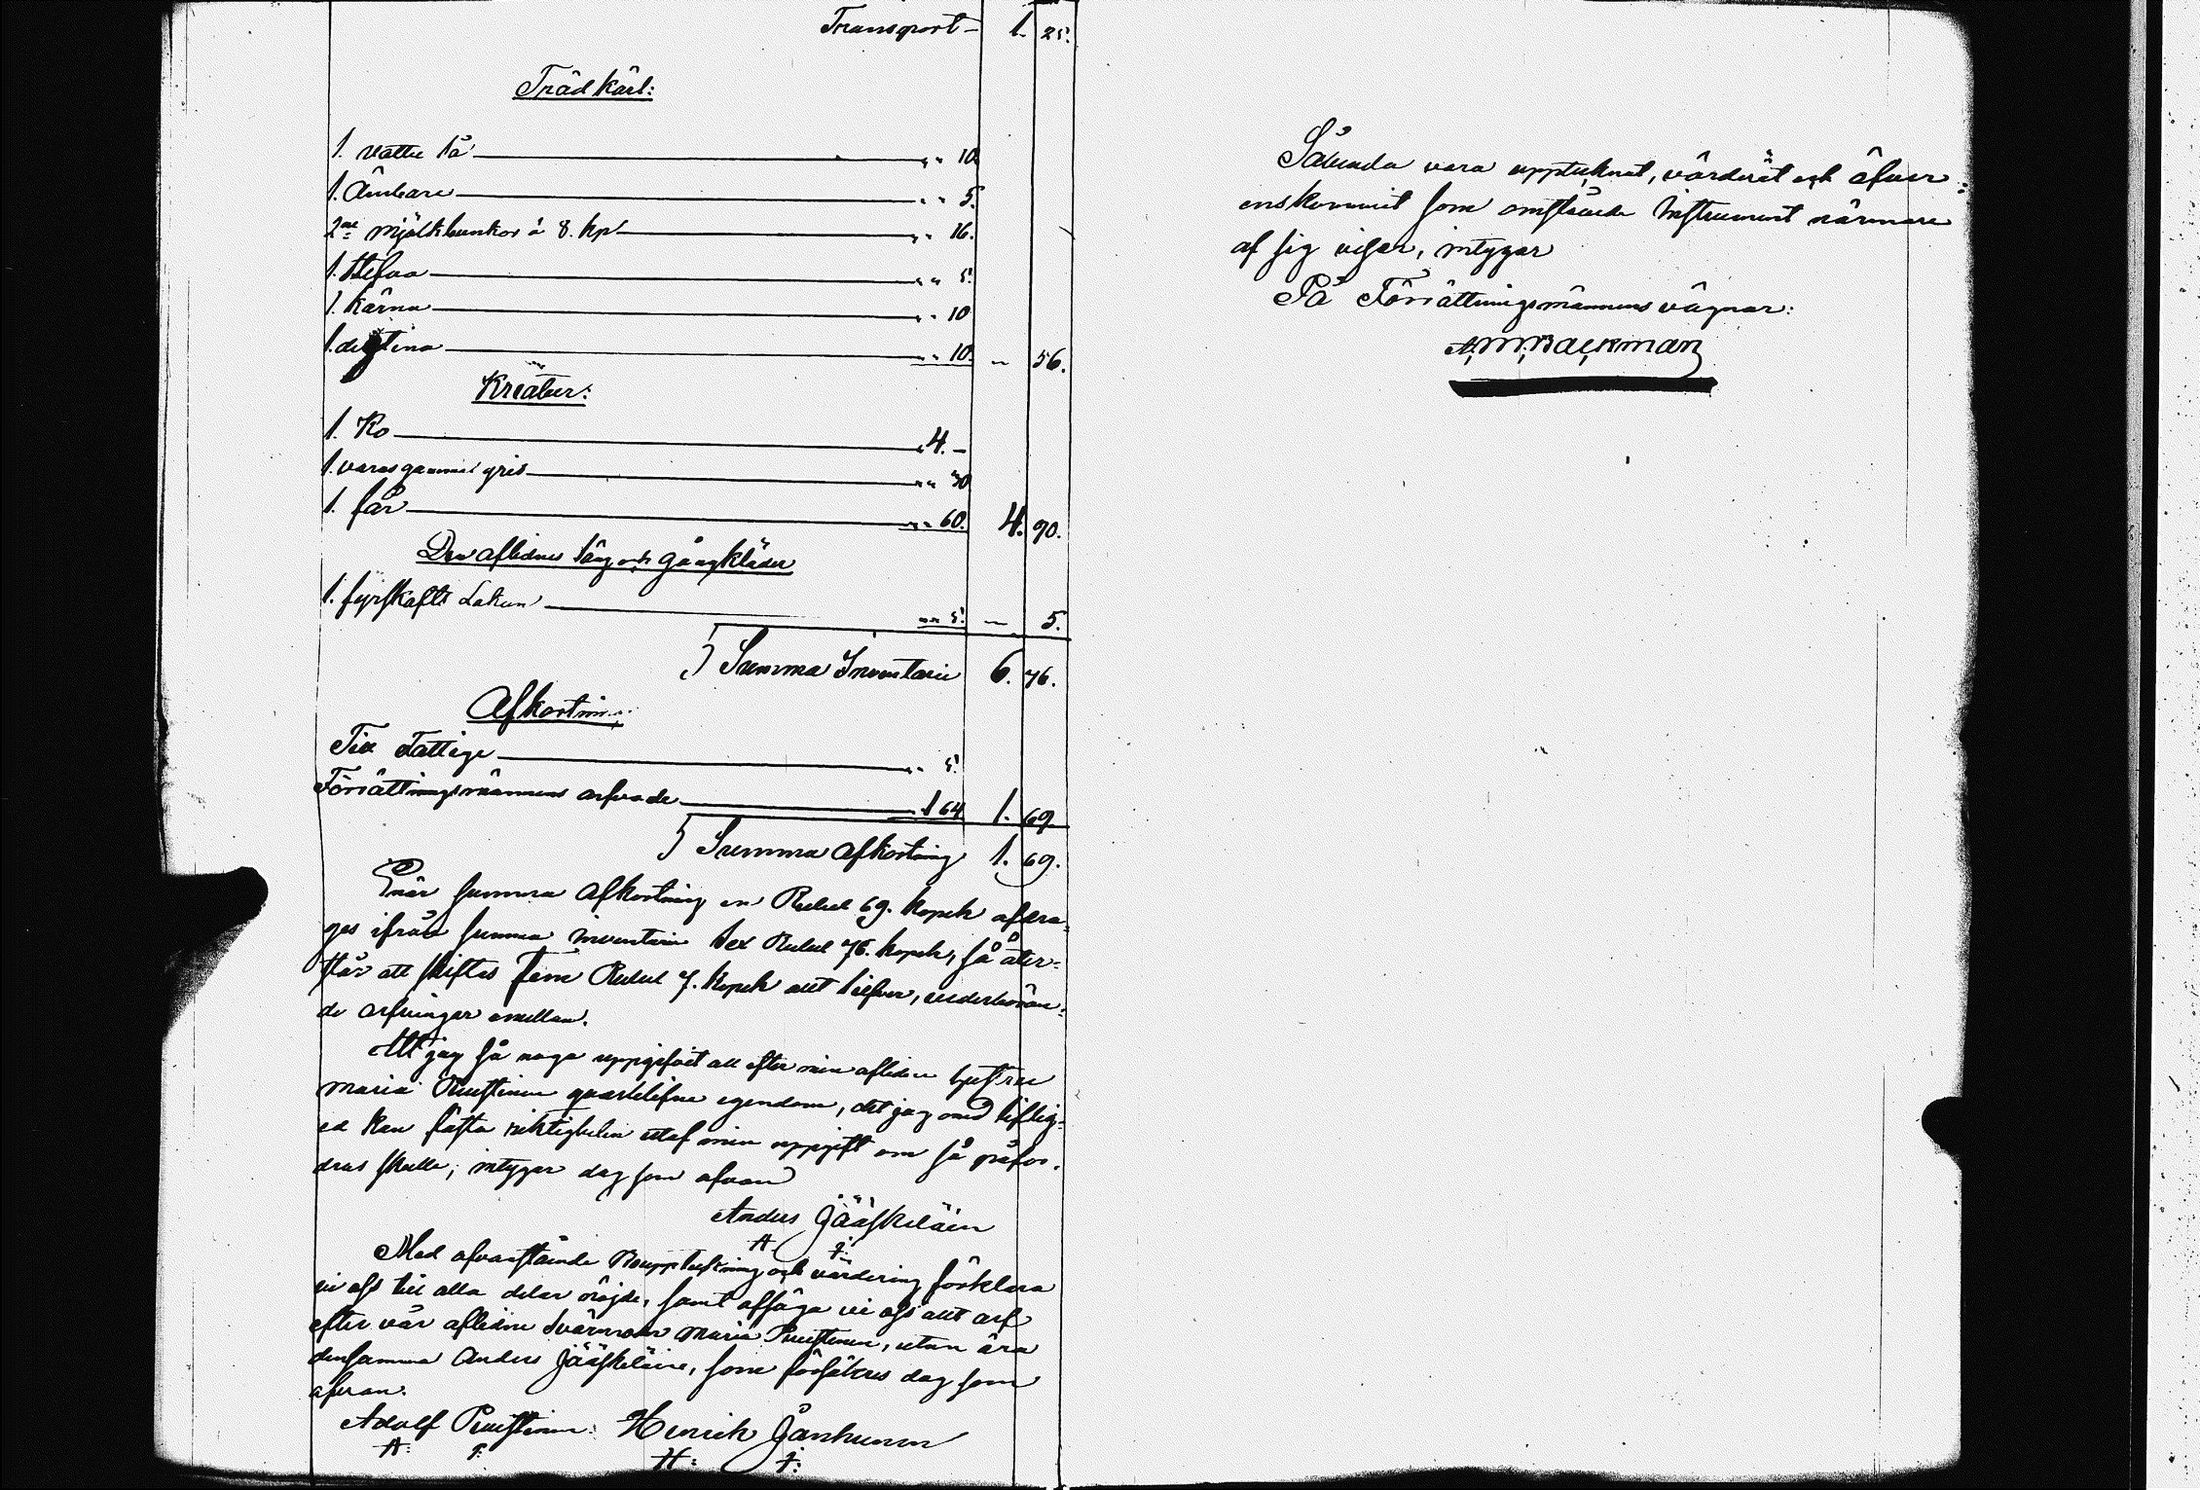 Transport 1. 25.
Träd kärl:
1. vatten så " " 10
1. Ämbare " " 5.
2ne mjölkbunkor à 8. kp " " 16.
1. Stefva " " 5.
1. Kärna " " 10
1. degtina " " 10. — 56.
Kreatur:
1. Ko " 4. —
1. varasgammal gris " " 30
1. får " " 60. 4. 90.
Den aflidnes Säng och gångkläder
1. fyrskafts Lakan " " 5. — 5.
Summa Inventarii 6. 76.
Afkortning
Till Fattige " " 5.
Förrättningsmännens arfvode 1 64 1. 69
Summa afkortning 1. 69.
När summa afkortning en Rubel 69. kopek afdra=
ges ifrån summa inventarii sex Rubel 76. kopek, så åter=
står att skiftas Fem Rubel 7. kopek allt silfver, vederböran=
de arfvingar emellan.
Att jag så noga uppgifvit all efter min aflidne hustru
Maria Puustinen qvarblefne egendom, det jag med liflig=
ed kan fästa riktigheten utaf min uppgift om så påfor=
dras skulle, intygar dag som ofvan
Anders Jääskeläin
A. J:
Med ofvanstående Bouppteckning och värdering förklara
vi oss till alla delar nöjde, samt afsäga vi oss allt arf
efter vår aflidne Svärmoder Maria Puustinen, utan ära
densamma Anders Jääskeläine, som försäkras dag som
ofvan.
Adolf Puustinen: Henrik Jänhunen
A: P: H: J:
Sålunda vara upptecknat, värderat och öfver=
enskommit som omstående Instrument närmare
af sig visar, intygar
På Förrättningsmännens vägnar:
A. M. Backman